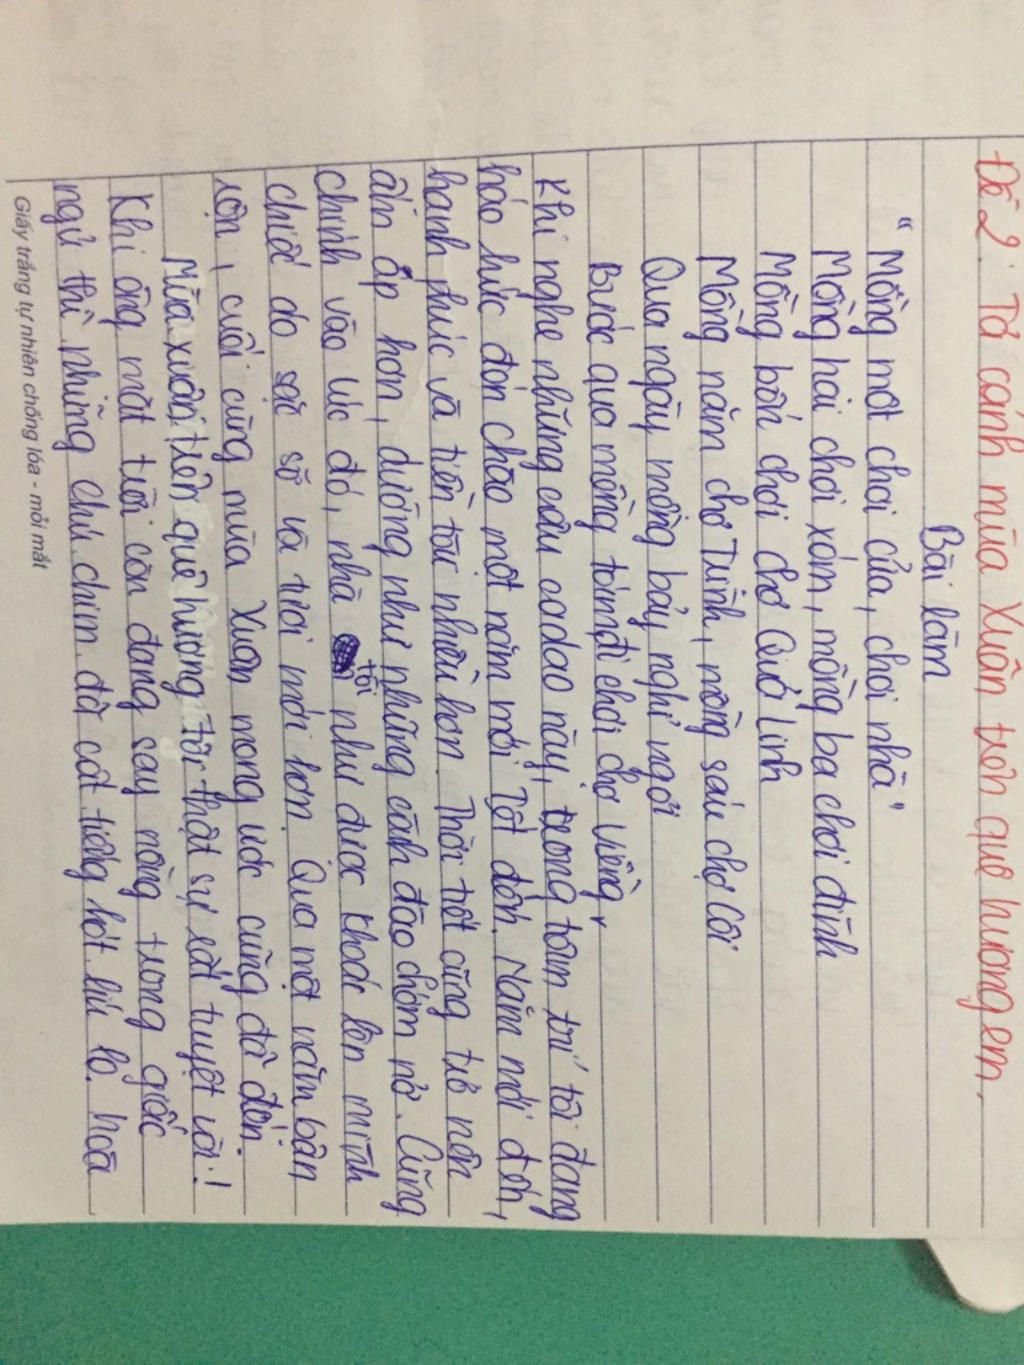 Đề 2: Tả cảnh mùa Xuân trên quê hương em.
Bài làm
"Mồng một chơi cửa, chơi nhà"
Mồng hai chơi xóm, mồng ba chơi đình
Mồng bốn chơi chợ Quả Linh
Mồng năm chợ Trình, mồng sáu chợ Côi
Qua ngày mồng bảy nghỉ ngơi
Bước qua mồng tám đi chơi chợ Viềng,
Khi nghe những câu ca dao này, trong tâm trí tôi đang
háo hức đón chào một năm mới Tết đến. Năm mới đến,
hạnh phúc và tiền tài nhiều hơn. Thời tiết cũng trở nên
ấm áp hơn, dường như những cành đào chớm nở. Cũng
chính vào lúc đó, nhà tôi như được khoác lên mình
chiếc áo sặc sỡ và tươi mới hơn. Qua một năm bận
rộn, cuối cùng mùa Xuân mong ước cũng đã đến.
Mùa xuân trên quê hương tôi thật sự rất tuyệt vời!
Khi ông mặt trời còn đang say nồng trong giấc
ngủ thì những chú chim đã cất tiếng hót líu lo. Hoa
Giấy trắng tự nhiên chống lóa - mỏi mắt